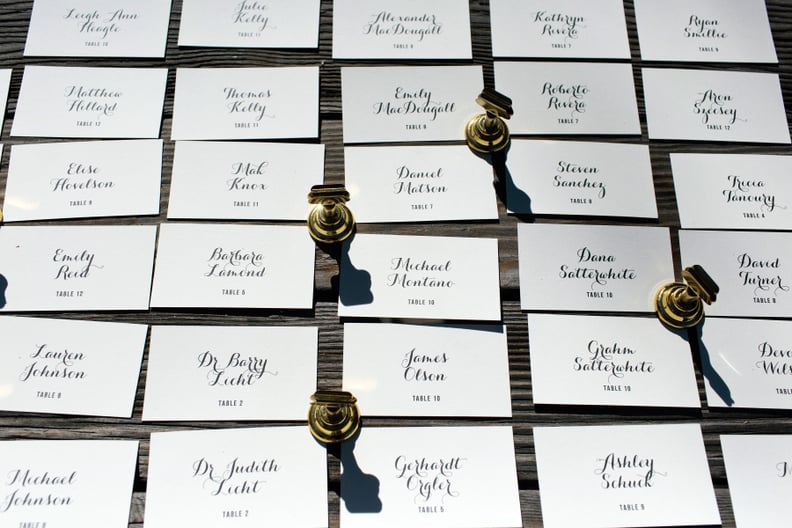 Leigh Ann
Heagle
TABLE 10
Julie
Kelly
TABLE 11
Alexander
MacDougall
TABLE 9
Kathryn
Rivera
TABLE 7
Ryan
Smillie
TABLE 9
Matthew
Hillard
TABLE 12
Thomas
Kelly
TABLE 11
Emily
MacDougall
TABLE 9
Roberto
Rivera
TABLE 7
Aron
Szecsey
TABLE 12
Elise
Hovelson
TABLE 9
Mak
Knox
TABLE 11
Daniel
Matson
TABLE 7
Steven
Sanchez
TABLE 8
Tricia
Tanoury
TABLE 4
Emily
Reid
TABLE 12
Barbara
Lamond
TABLE 5
Michael
Montano
TABLE 10
Dana
Satterwhite
TABLE 10
David
Turner
TABLE 8
Lauren
Johnson
TABLE 8
Dr Barry
Licht
TABLE 2
James
Olson
TABLE 10
Grahm
Satterwhite
TABLE 10
TAB
Michael
Johnson
TABLE 8
Dr Judith
Licht
TABLE 2
Gerhardt
Orgler
TABLE 5
Ashley
Schuck
TABLE 9